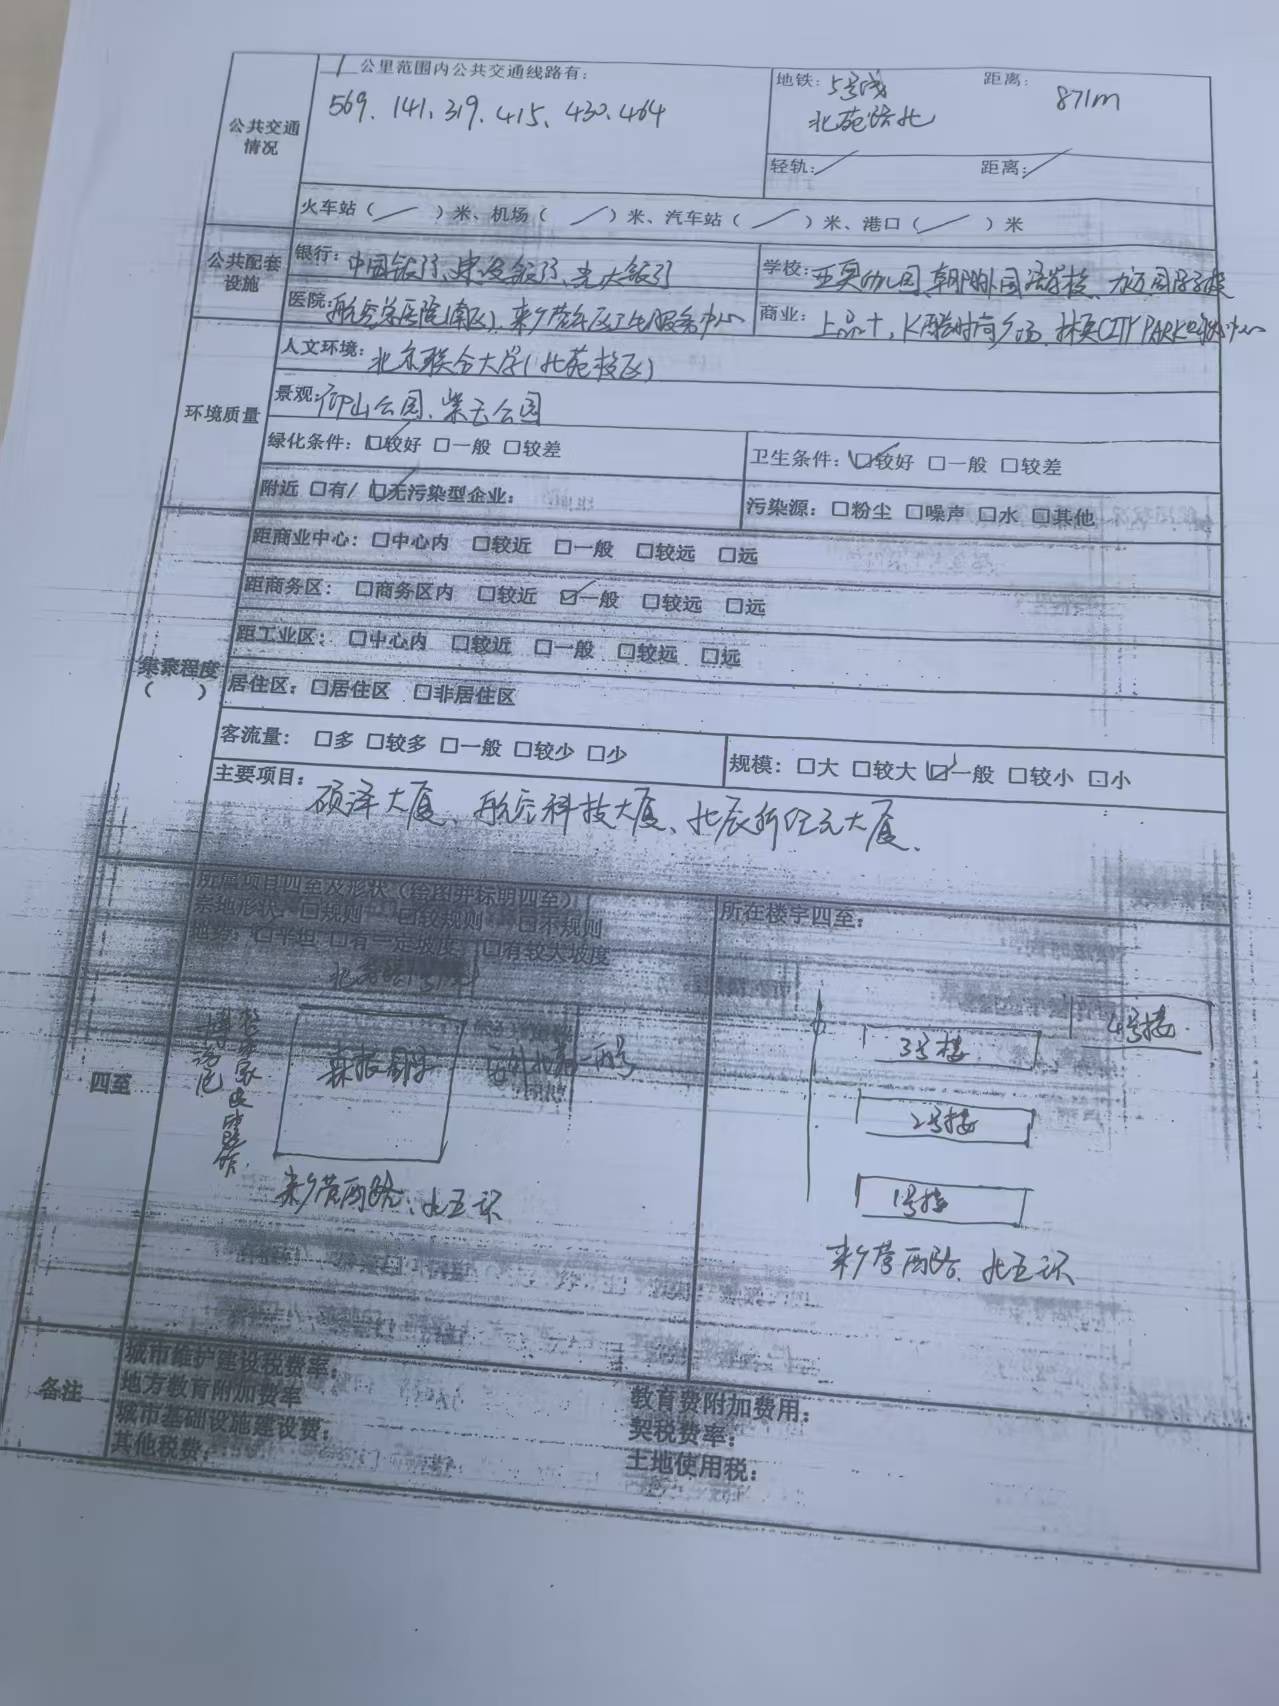 1 公里范围内公共交通线路有:
569、141、319、415、430、464
地铁: 5号线 距离: 871m
北苑路北
轻轨: / 距离: /
公共交通
情况
火车站( / )米、机场( / )米、汽车站( / )米、港口( / )米
公共配套
设施
银行: 中国银行、建设银行、光大银行
学校: 亚奥幼儿园、朝阳外国语学校、
医院: 航空总医院(南区)、来广营社区卫生服务中心
商业: 上品+、K酷时尚广场、林奥CITY PARK
环境质量
人文环境: 北京联合大学(北苑校区)
景观: 仰山公园、紫玉公园
绿化条件: ☑较好 □一般 □较差
卫生条件: ☑较好 □一般 □较差
附近 □有/ ☑无污染型企业:
污染源: □粉尘 □噪声 □水 □其他
集聚程度
( )
距商业中心: □中心内 □较近 □一般 □较远 □远
距商务区: □商务区内 □较近 ☑一般 □较远 □远
距工业区: □中心内 □较近 □一般 □较远 □远
居住区: □居住区 □非居住区
客流量: □多 □较多 □一般 □较少 □少
规模: □大 □较大 ☑一般 □较小 □小
主要项目: 硕泽大厦、航空科技大厦、北辰新纪元大厦、
四至
所属项目四至及形状(绘图并标明四至)
宗地形状: □规则 □较规则 □不规则
地势: □平坦 □有一定坡度 □有较大坡度
所在楼宇四至:
来广营西路、北五环
4号楼
3号楼
2号楼
1号楼
来广营西路、北五环
备注
城市维护建设税费率:
地方教育附加费率
教育费附加费用:
城市基础设施建设费:
契税费率:
其他税费:
土地使用税: